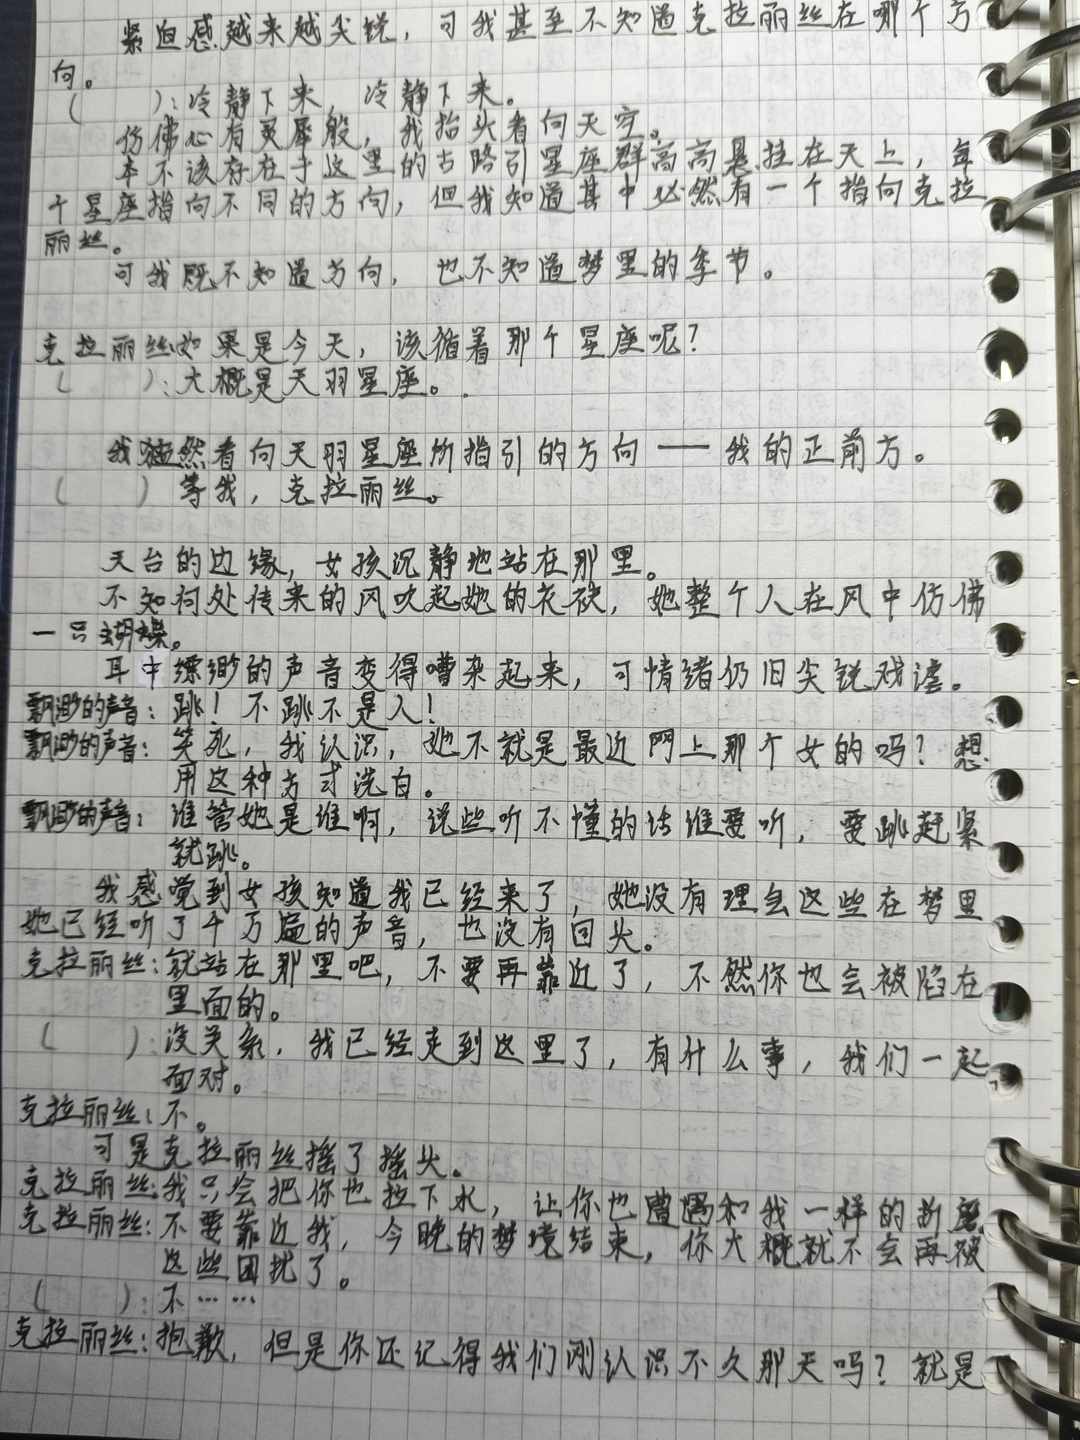 紧迫感越来越尖锐，可我甚至不知道克拉丽丝在哪个方
向。
(　　)：冷静下来，冷静下来。
仿佛心有灵犀般，我抬头看向天空。
本不该存在于这里的古路引星座群高高悬挂在天上，每
个星座指向不同的方向，但我知道其中必然有一个指向克拉
丽丝。
可我既不知道方向，也不知道梦里的季节。
克拉丽丝：如果是今天，该循着那个星座呢？
(　　)：大概是天羽星座。
我猛然看向天羽星座所指引的方向——我的正前方。
(　　) 等我，克拉丽丝。
天台的边缘，女孩沉静地站在那里。
不知何处传来的风吹起她的衣袂，她整个人在风中仿佛
一只蝴蝶。
耳中缥缈的声音变得嘈杂起来，可情绪仍旧尖锐戏谑。
飘渺的声音：跳！不跳不是人！
飘渺的声音：笑死，我认识，她不就是最近网上那个女的吗？想
用这种方式洗白。
飘渺的声音：谁管她是谁啊，说些听不懂的话谁要听，要跳赶紧
就跳。
我感觉到女孩知道我已经来了，她没有理会这些在梦里
她已经听了千万遍的声音，也没有回头。
克拉丽丝：就站在那里吧，不要再靠近了，不然你也会被陷在
里面的。
(　　)：没关系，我已经走到这里了，有什么事，我们一起
面对。
克拉丽丝：不。
可是克拉丽丝摇了摇头。
克拉丽丝：我只会把你也拉下水，让你也遭遇和我一样的折磨
克拉丽丝：不要靠近我，今晚的梦境结束，你大概就不会再被
这些困扰了。
(　　)：不……
克拉丽丝：抱歉，但是你还记得我们刚认识不久那天吗？就是